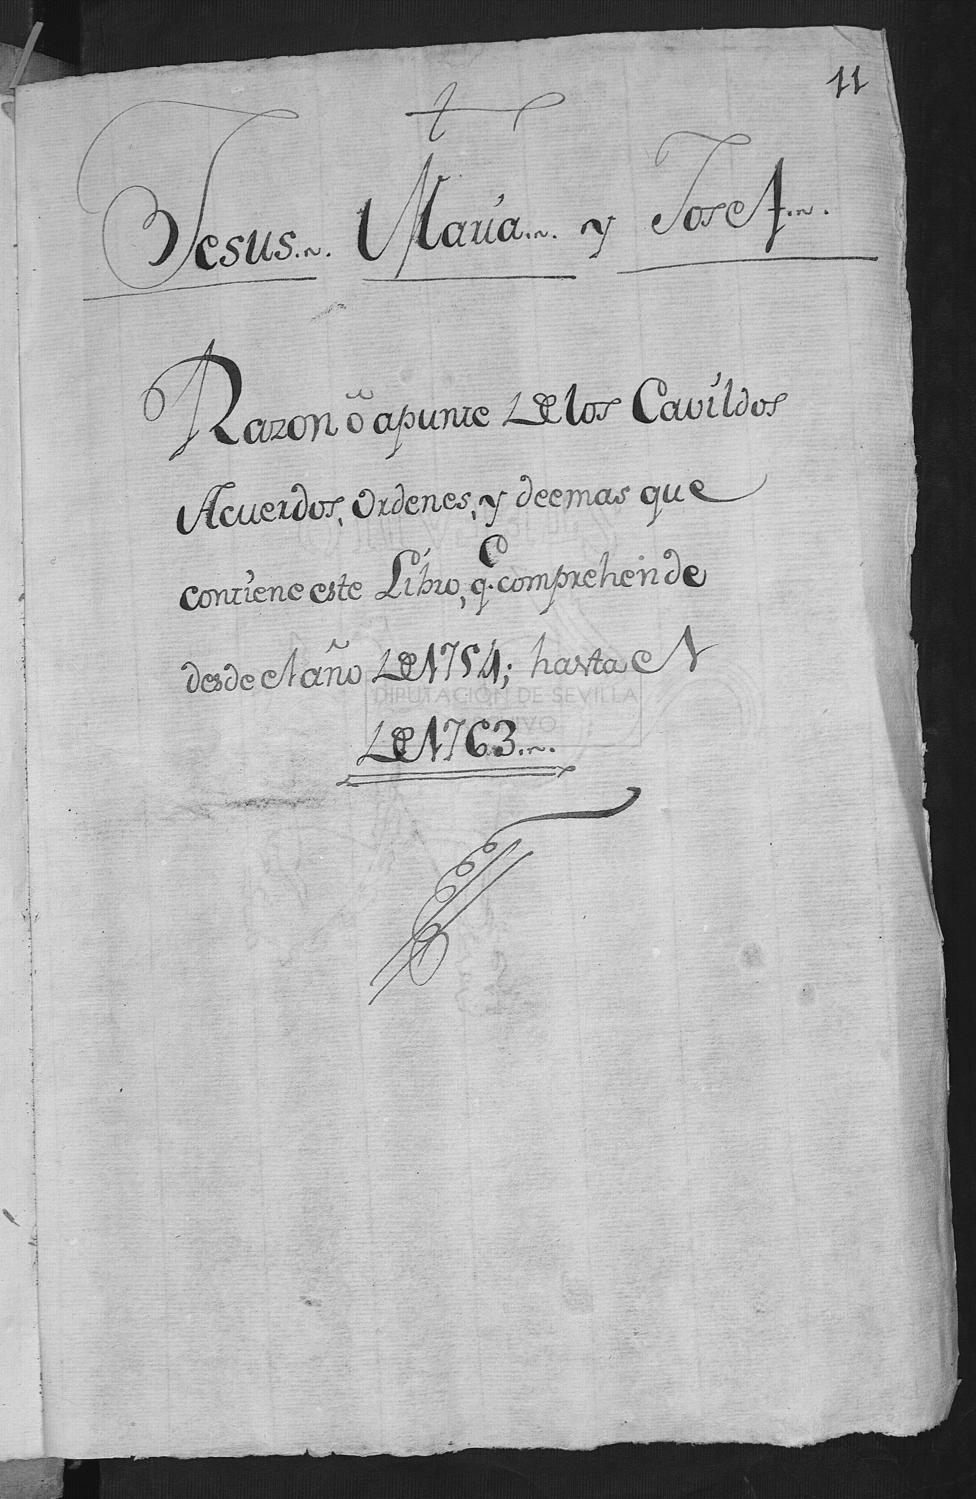 11
Jesus.~. Maria.~. y Josef.~.
Razon ô apunte de los Cavildos
Acuerdos, Ordenes, y deemas que
contiene este Libro, q.e comprehende
desde el año de 1754; hasta el
de 1763.~.
DIPUTACIÓN DE SEVILLA